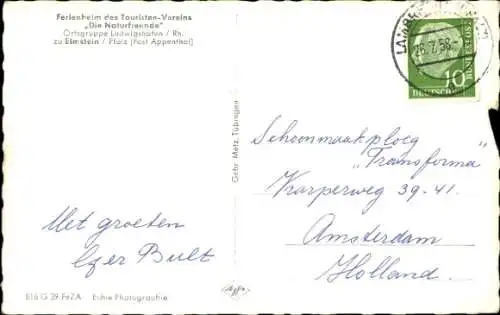 Ferienheim des Touristen-Vereins
„Die Naturfreunde"
Ortsgruppe Ludwigshafen / Rh.
zu Elmstein / Pfalz (Post Appenthal)
26.7.56.
10
DEUTSCHE BUNDESPOST
Gebr. Metz, Tübingen
Schoonmaakploeg
„Transforma"
Karperweg 39-41.
Amsterdam
Holland.
Met groeten
Bult
816 G 29 FeZA Echte Photographie
Agfa